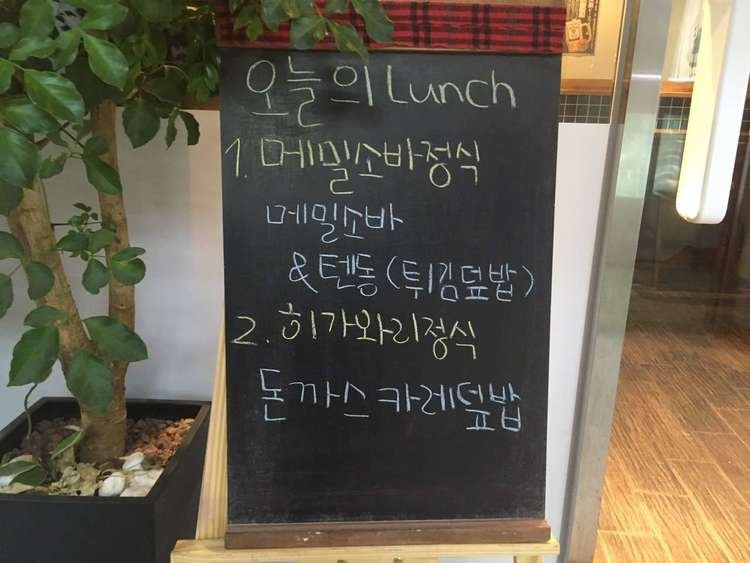 오늘의 Lunch
1. 메밀소바정식
메밀소바
&텐동(튀김덮밥)
2. 히가와리정식
돈까스카레덮밥